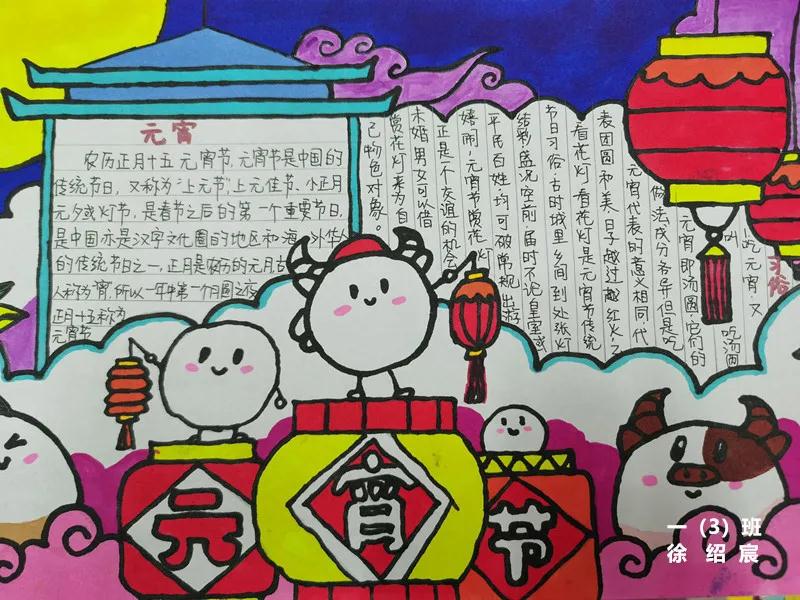 元宵
农历正月十五元宵节,元宵节是中国的
传统节日,又称为“上元节”上元佳节、小正月
元夕或灯节,是春节之后的第一个重要节日,
是中国亦是汉字文化圈的地区和海外华人
的传统节日之一,正月是农历的元月古
人称“宵”,所以一年中第一个月圆之夜
正月十五称为
元宵节
习俗
吃元宵,又叫
吃汤圆
元宵即汤圆,它们的
做法成分各异但是吃
元宵代表的意义相同代
表团团圆和美,日子越过越红火。
看花灯 看花灯是元宵节传统
节日习俗,古时城里乡间到处张灯
结彩,盛况空前,届时不论皇室或
平民百姓,均可破常规,出游
嬉闹,元宵节赏花灯
正是一个交谊的机会
未婚男女可以借
赏花灯来为自
己物色对象。
元
宵
节
一(3)班
徐绍宸